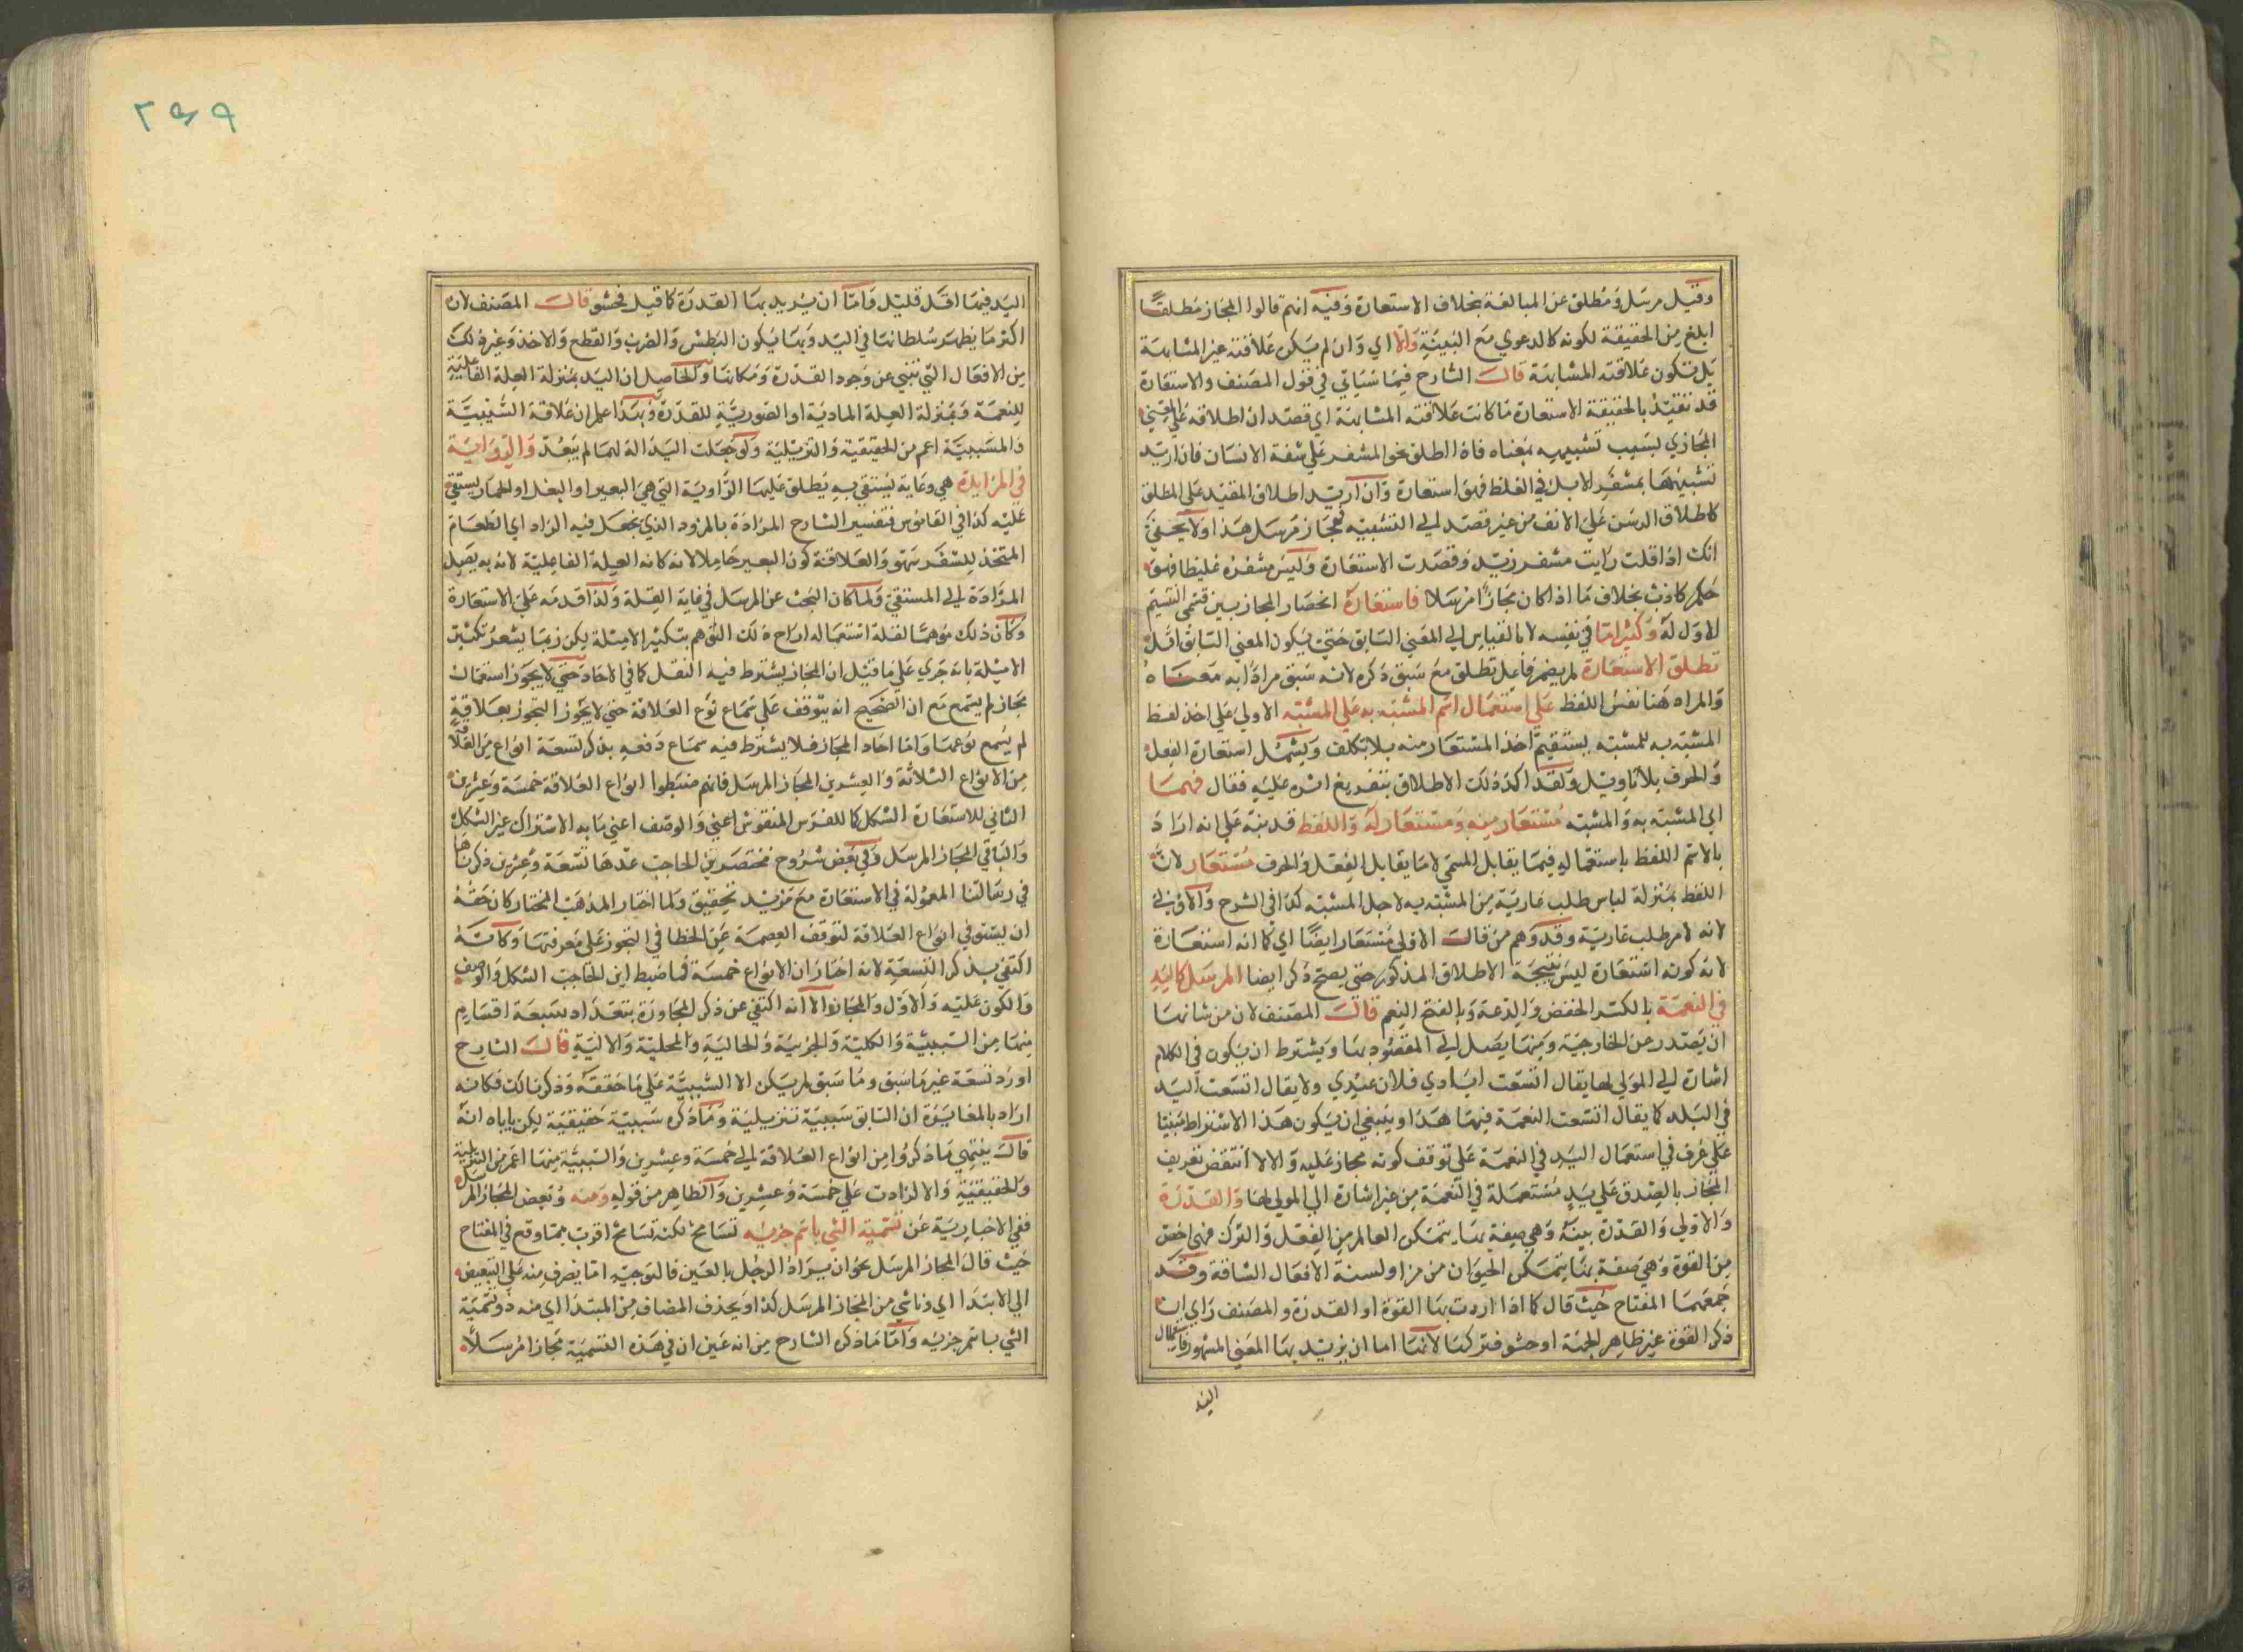 وقيل مرسل ومطلق عن المبالغة بخلاف الاستعارة وفيه انهم قالوا المجاز مطلقا
ابلغ من الحقيقة لكونه كالدعوي مع البينة والا اي وان لم يكن علاقته غير المشابهة
بل تكون علاقته المشابهة قال الشارح فيما سياتي في قول المصنف والاستعارة
قد تقيد بالحقيقية الاستعارة ما كانت علاقته المشابهة اي قصد ان اطلاقه علي المعني
المجازي بسبب تشبيهه بمعناه فاذا اطلق نحو المشفر علي شفة الانسان فان اريد
تشبيهها بمشفر الابل في الغلظ فهو استعارة وان اريد اطلاق المقيد علي المطلق
كاطلاق المرسن علي الانف من غير قصد الي التشبيه فمجاز مرسل هذا ولا يخفي
انك اذا قلت رايت مشفر زيد وقصدت الاستعارة وليس مشفره غليظا فهو
حكم كاذب بخلاف ما اذا كان مجازا مرسلا فاستعارة انحصار المجاز بين قسمي التقسيم
الاول له وكثيرا ما في نفسه لا بالقياس الي المعني السابق حتي يكون المعني السابق اقل
تطلق الاستعارة لم يضمر فاعل تطلق مع سبق ذكره لانه سبق مرادا به معناه
والمراد هنا نفس اللفظ علي استعمال اسم المشبه به علي المشبه الاولي علي اخذ لفظ
المشبه به للمشبه ليستقيم اخذ المستعار منه بلا تكلف ويشمل استعارة الفعل
والحرف بلا تاويل ولقد اكد ذلك الاطلاق بتفريغ اثره عليه فقال فهما
اي المشبه به والمشبه مستعار منه ومستعار له واللفظ قد نبه علي انه اراد
بالاسم اللفظ باستعماله فيما يقابل المسمي لا ما يقابل الفعل والحرف مستعار لان
اللفظ بمنزلة لباس طلب عارية من المشبه به لاجل المشبه كذا في الشرح والاولي
لانه لامر طلب عارية وقد وهم من قال الاولي مستعار ايضا اي كما انه استعارة
لانه كونه استعارة ليس نتيجة الاطلاق المذكور حتي يصح ذكر ايضا المرسل كاليد
في النعمة بالكسر الخفض والدعة وبالفتح النعم قال المصنف لان من شانها
ان يصدر عن الخارجية ومنها يصل الي المقصود بها ويشترط ان يكون في الكلام
اشارة الي المولي لها يقال اتسعت ايادي فلان عندي ولا يقال اتسعت اليد
في البلد كما يقال اتسعت النعمة فيها هذا وينبغي ان يكون هذا الاشتراط مبنيا
علي عرف في استعمال اليد في النعمة علي توقف كونه مجاز عليه والا لا انتقض تعريف
المجاز بالصدق علي يد مستعملة في النعمة من غير اشارة الي المولي لها والقدرة
والاولي والقدرة بينة وهي صفة بها يتمكن العالم من الفعل والترك فهي اخص
من القوة وهي صفة بها يتمكن الحيوان من مزاولة الافعال الشاقة وقد
جمعهما المفتاح حيث قال كما اذا اردت بها القوة او القدرة والمصنف راي ان
ذكر القوة غير ظاهر الجهة او حشو فتركها لانها اما ان يريد بها المعني المشهور فاستعمال
اليد
٢٤٩
اليد فيها اقل قليل واما ان يريد بها القدرة كما قيل فحشو قال المصنف لان
اكثر ما يظهر سلطانها في اليد وبها يكون البطش والضرب والقطع والاخذ وغير ذلك
من الافعال التي تنبي عن وجود القدرة ومكانها والحاصل ان اليد بمنزلة العلة الفاعلية
للنعمة وبمنزلة العلة المادية او الصورية للقدرة وبهذا علم ان علاقة السببية
والمسببية اعم من الحقيقية والتنزيلية ولو جعلت اليد الة لها لم يبعد والراوية
في المزادة هي وعاية يستقي به يطلق عليها الراوية التي هي البعير او البغل او الحمار يستقي
عليه كذا في القاموس فتفسير الشارح المزادة بالمزود الذي يجعل فيه الزاد اي الطعام
المتخذ للسفر سهو والعلاقة كون البعير حاملا لانه كانه العلة الفاعلية لانه به يصل
المزادة الي المستقي ولما كان البحث عن المرسل في غاية القلة ولذا قدمه علي الاستعارة
وكان ذلك موهما لقلة استعماله ازاح ذلك التوهم بتكثير الامثلة لكن ربما يشعر تكثير
الامثلة بانه جري علي ما قيل ان المجاز يشترط فيه النقل كما في الاحاد حتي لا يجوز استعمال
مجاز لم يسمع مع ان الصحيح انه يتوقف علي سماع نوع العلاقة حتي لا يجوز التجوز بعلاقة
لم يسمع نوعها واما احاد المجاز فلا يشترط فيه سماع دفعه بذكر تسعة انواع من العلاقة
من الانواع الثلاثة والعشرين المجاز المرسل فانهم ضبطوا انواع العلاقة خمسة وعشرين
الثاني للاستعارة الشكل كما للفرس المنقوش اعني والوصف اعني ما به الاشتراك غير الشكل
والباقي المجاز المرسل وفي بعض شروح مختصر بن الحاجب عدها تسعة وعشرين ذكرناها
في رسالتنا المعمولة في الاستعارة مع مزيد تحقيق ولما اختار المذهب المختار كان حقه
ان يستوفي انواع العلاقة لتوقف العصمة عن الخطا في التجوز علي معرفتها وكانه
اكتفي بذكر التسعة لانه اختار ان الانواع خمسة فما ضبط ابن الحاجب الشكل والوصف
والكون عليه والاول والمجاز الا انه اكتفي عن ذكر المجاورة بتعداد سبعة اقسام
منها من السببية والكلية والجزئية والحالية والمحلية والالية قال الشارح
اورد تسعة غير ما سبق وما سبق لم يكن الا السببية علي ما حققه وذكرنا لك فكانه
اراد بالمغايرة ان السابق سببية تنزيلية وما ذكره سببية حقيقية لكن ياباه انه
قال ينتهي ما ذكروا من انواع العلاقة الي خمسة وعشرين والسببية منها اعم من التنزيلية
والحقيقية والا لزادت علي خمسة وعشرين والظاهر من قوله ومنه وبعض المجاز المرسل
ففي الاخبارية عن تسمية الشي باسم جزئه تسامح لكنه تسامح اقرب مما وقع في المفتاح
حيث قال المجاز المرسل نحو ان يراد الرجل بالعين فالتوجيه اما بصرف منه علي التبعيض
الي الابتدا اي وناشي من المجاز المرسل كذا ويحذف المضاف من المبتدا اي منه ذو تسمية
الشي باسم جزئه واما ما ذكره الشارح من انه عين ان في هذه التسمية مجازا مرسلا